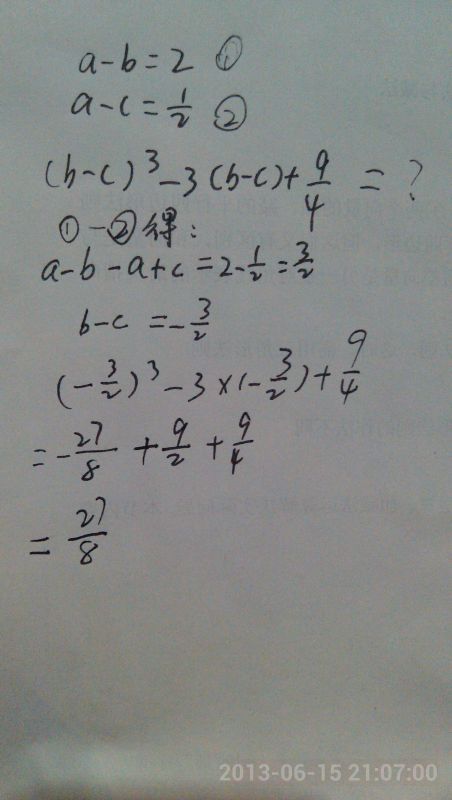 a-b=2 ①
a-c=1/2 ②
(b-c)³-3(b-c)+9/4=?
①-②得:
a-b-a+c=2-1/2=3/2
b-c=-3/2
(-3/2)³-3×(-3/2)+9/4
=-27/8+9/2+9/4
=27/8
2013-06-15 21:07:00